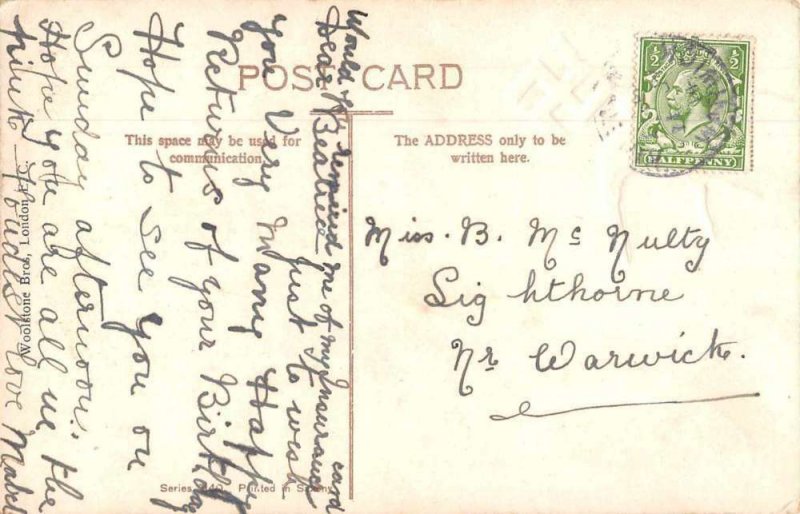 POST CARD
This space may be used for
communication.
The ADDRESS only to be
written here.
½ ½
HALFPENNY
Would you remind me of my Insurance card
Dear Beatrice Just to wish
you Very Many Happy
Returns of your Birthday
Hope to See you on
Sunday afternoon.
Hope you are all in the
pink. Loads Love Mabel
Woolstone Bros, London,
Miss. B. Mc Nulty
Lighthorne
Nr Warwick.
Series 140 Printed in Saxony